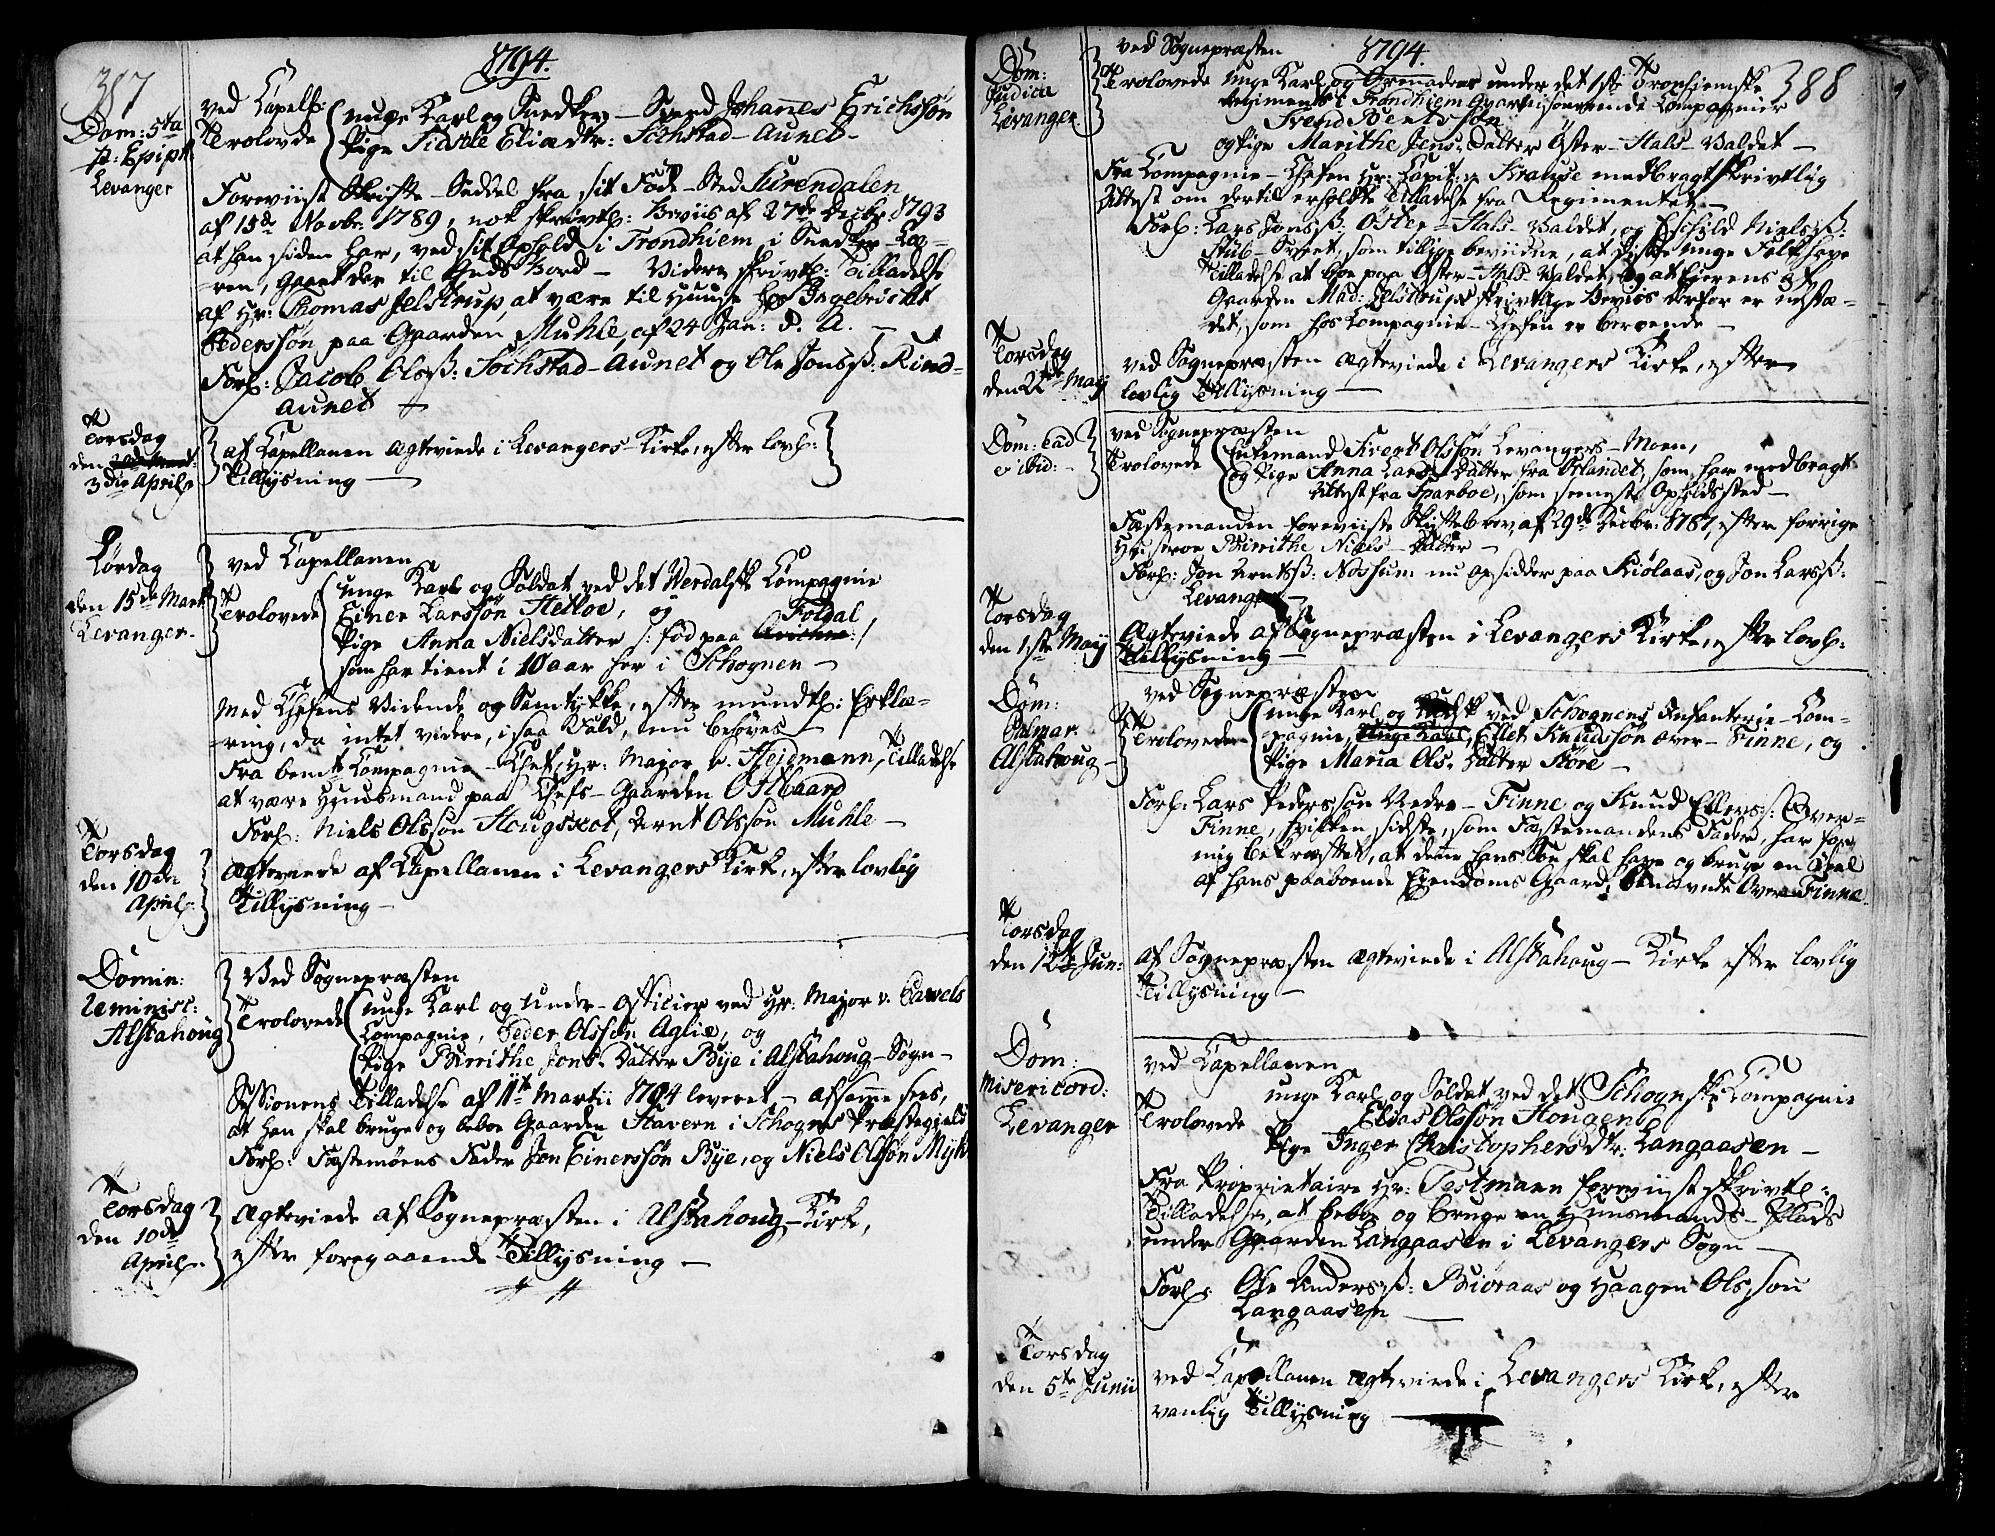 387
1794.
Dom: 5ta
p: Epiph:
Levanger
ved Capell:
Trolovede
unge Karl og Snedker-Svend Johanes Erichssøn
Pige Sidsele Eliædtr: Sochstad-Aunet-
Foreviist Skrifte-Seddel fra sit Føde-Sted Surendalen
af 15de Novbr: 1789, nok skrivtl: Beviis af 27de Decbr 1793
at han siden har, ved sit Ophold i Trondhiem i Snedker-Læ-
ren, gaaet der til Guds Bord - Videre skrivtl: Tilladelse
af Hr: Thomas Jelstrup, at være til Huuse hos Ingebricht
Pederssøn paa Gaarden Muhle, af 24 Jan: d. A. -
Forl: Jacob Olsß: Sochstad-Aunet og Ole Jonsß: Rind-
Aunet -
Torsdag
den
3die April:
af Capellanen ægteviede i Levangers-Kirke, efter lovl:
Tillysning -
Lørdag
den 15de Mart:
Levanger.
ved Capellanen
Trolovede
unge Karl og Soldat ved det Verdalske Compagnie
Einer Larssøn Hetloe, og
Foldal
Pige Anna Nielsdatter /: fød paa :/
som har tient i 10 aar her i Schognen -
Med Chefens Vidende og Samtykke, efter mundtl: Erklæ-
ring, da intet videre, i saa Fald, nu behøves -
Fra bemte Compagnie-Chef, Hr: Major v. Heiemann, Tilladelse
at være Huusmand paa Chefs-Gaarden Ostbaard
Forl: Niels Olssøn Hougsxot, Arnt Olssøn Muhle -
Torsdag
den 10de
April:
Ægteviede af Capellanen i Levangers Kirke, efter lovlig
Tillysning -
Domin:
Reminisc:
Alstahoug
Ved Sognepræsten
Trolovede
unge Karl og Under-Officier ved Hr: Major v. Pawels
Compagnie, Peder Olssøn Aglie, og
Pige Birrithe Jons-Datter Bye i Alstahoug-Sogn-
Sessionens Tilladelse af 11te Martii 1794 leveret - af samme sees,
at Han skal bruge og beboe Gaarden Stavern i Schognes Præstegield
Forl: Fæstemøens Fader Jon Einerssøn Bye, og Niels Olssøn Myhr
Torsdag
den 10de
April:
Ægteviede af Sognepræsten i Alstahoug-Kirke,
efter foregaaende Tillysning -
388
1794.
Dom:
Judica
Levanger
ved Sognepræsten
Trolovede unge Karl og Grenadeer under det 1ste Tronhiemske
Regiments i Trondhiem Guarnisonerende Compagnier
Svend Bentssøn
og Pige Marithe Jens-Datter Øster-Hals-Valdet -
Fra Compagnie-Chefen Hr: Capit: v. Krause medbragt skrivtlig
Attest om dertil erholdte Tilladelse fra Regimentet -
Forl: Lars Jonsß: Øster-Hals-Valdet, og Eschild Nielsß:
Stub-Sveet, som tillige bevidne, at disse unge Folk have
Tilladelse at boe paa Øster-Hals Valdet, og at Eierens af
Gaarden Mad: Jelstrups skrivtlige Beviis derfor er udstæ-
det, som hos Compagnie-Chefen er beroende -
Torsdag
den 22de Maij
ved Sognepræsten ægteviede i Levangers Kirke, efter
lovlig Tillysning -
Dom: ead
ibid: -
ved Sognepræsten
Trolovede
Enkemand Sivert Olssøn Levangers-Moen,
og Pige Anna Lars-Datter fra Ørlandet, som har medbragt
Attest fra Sparboe, som seeneste Opholdssted -
Fæstemanden foreviiste Skiftebrev, af 29de Decbr: 1787, efter forrige
Hustroe Birrithe Niels-Datter -
Forl: Jon Arntsß: Nossum nu opsidder paa Kiølaas, og Jon Larsß:
Levanger -
Torsdag
den 1ste Maij
Ægteviede af Sognepræsten i Levangers Kirke, efter lovl:
Tillysning -
Dom:
Palmar.
Alstahoug -
ved Sognepræsten
Trolovede
unge Karl og ved Schognens Infanterie-Com-
pagnie, Ellef Knudssøn Over-Finne, og
Pige Maria Ols-Datter Støre -
Forl: Lars Pederssøn Nedre-Finne og Knud Ellefsß: Over-
Finne, hvilken sidste, som Fæstemandens Fader, har for
mig bekræftet, at denne hans Søn skal have og bruge en Deel
af hans paaboende Eyendoms Gaard, benævnte Over-Finne.
Torsdag
den 12te Jun:
af Sognepræsten ægteviede i Alstahoug-Kirke efter lovlig
Tillysning -
Dom:
Misericord:
Levanger
ved Capellanen
Trolovede
unge Karl og Soldat ved det Schognske Compagnie
Elias Olssøn Hougen
Pige Inger Christophersdtr: Langaasen -
Fra Proprietaire Hr: Testmann foreviist skrivtl:
Tilladelse, at beboe og bruge en Huusmands-Plads
under Gaarden Langaasen i Levangers Sogn -
Forl: Ole Andersß: Buøraas og Haagen Olssøn
Langaasen -
Torsdag
den 5te Junii
ved Capellanen ægteviede i Levangers Kirke, efter
vanlig Tillysning -